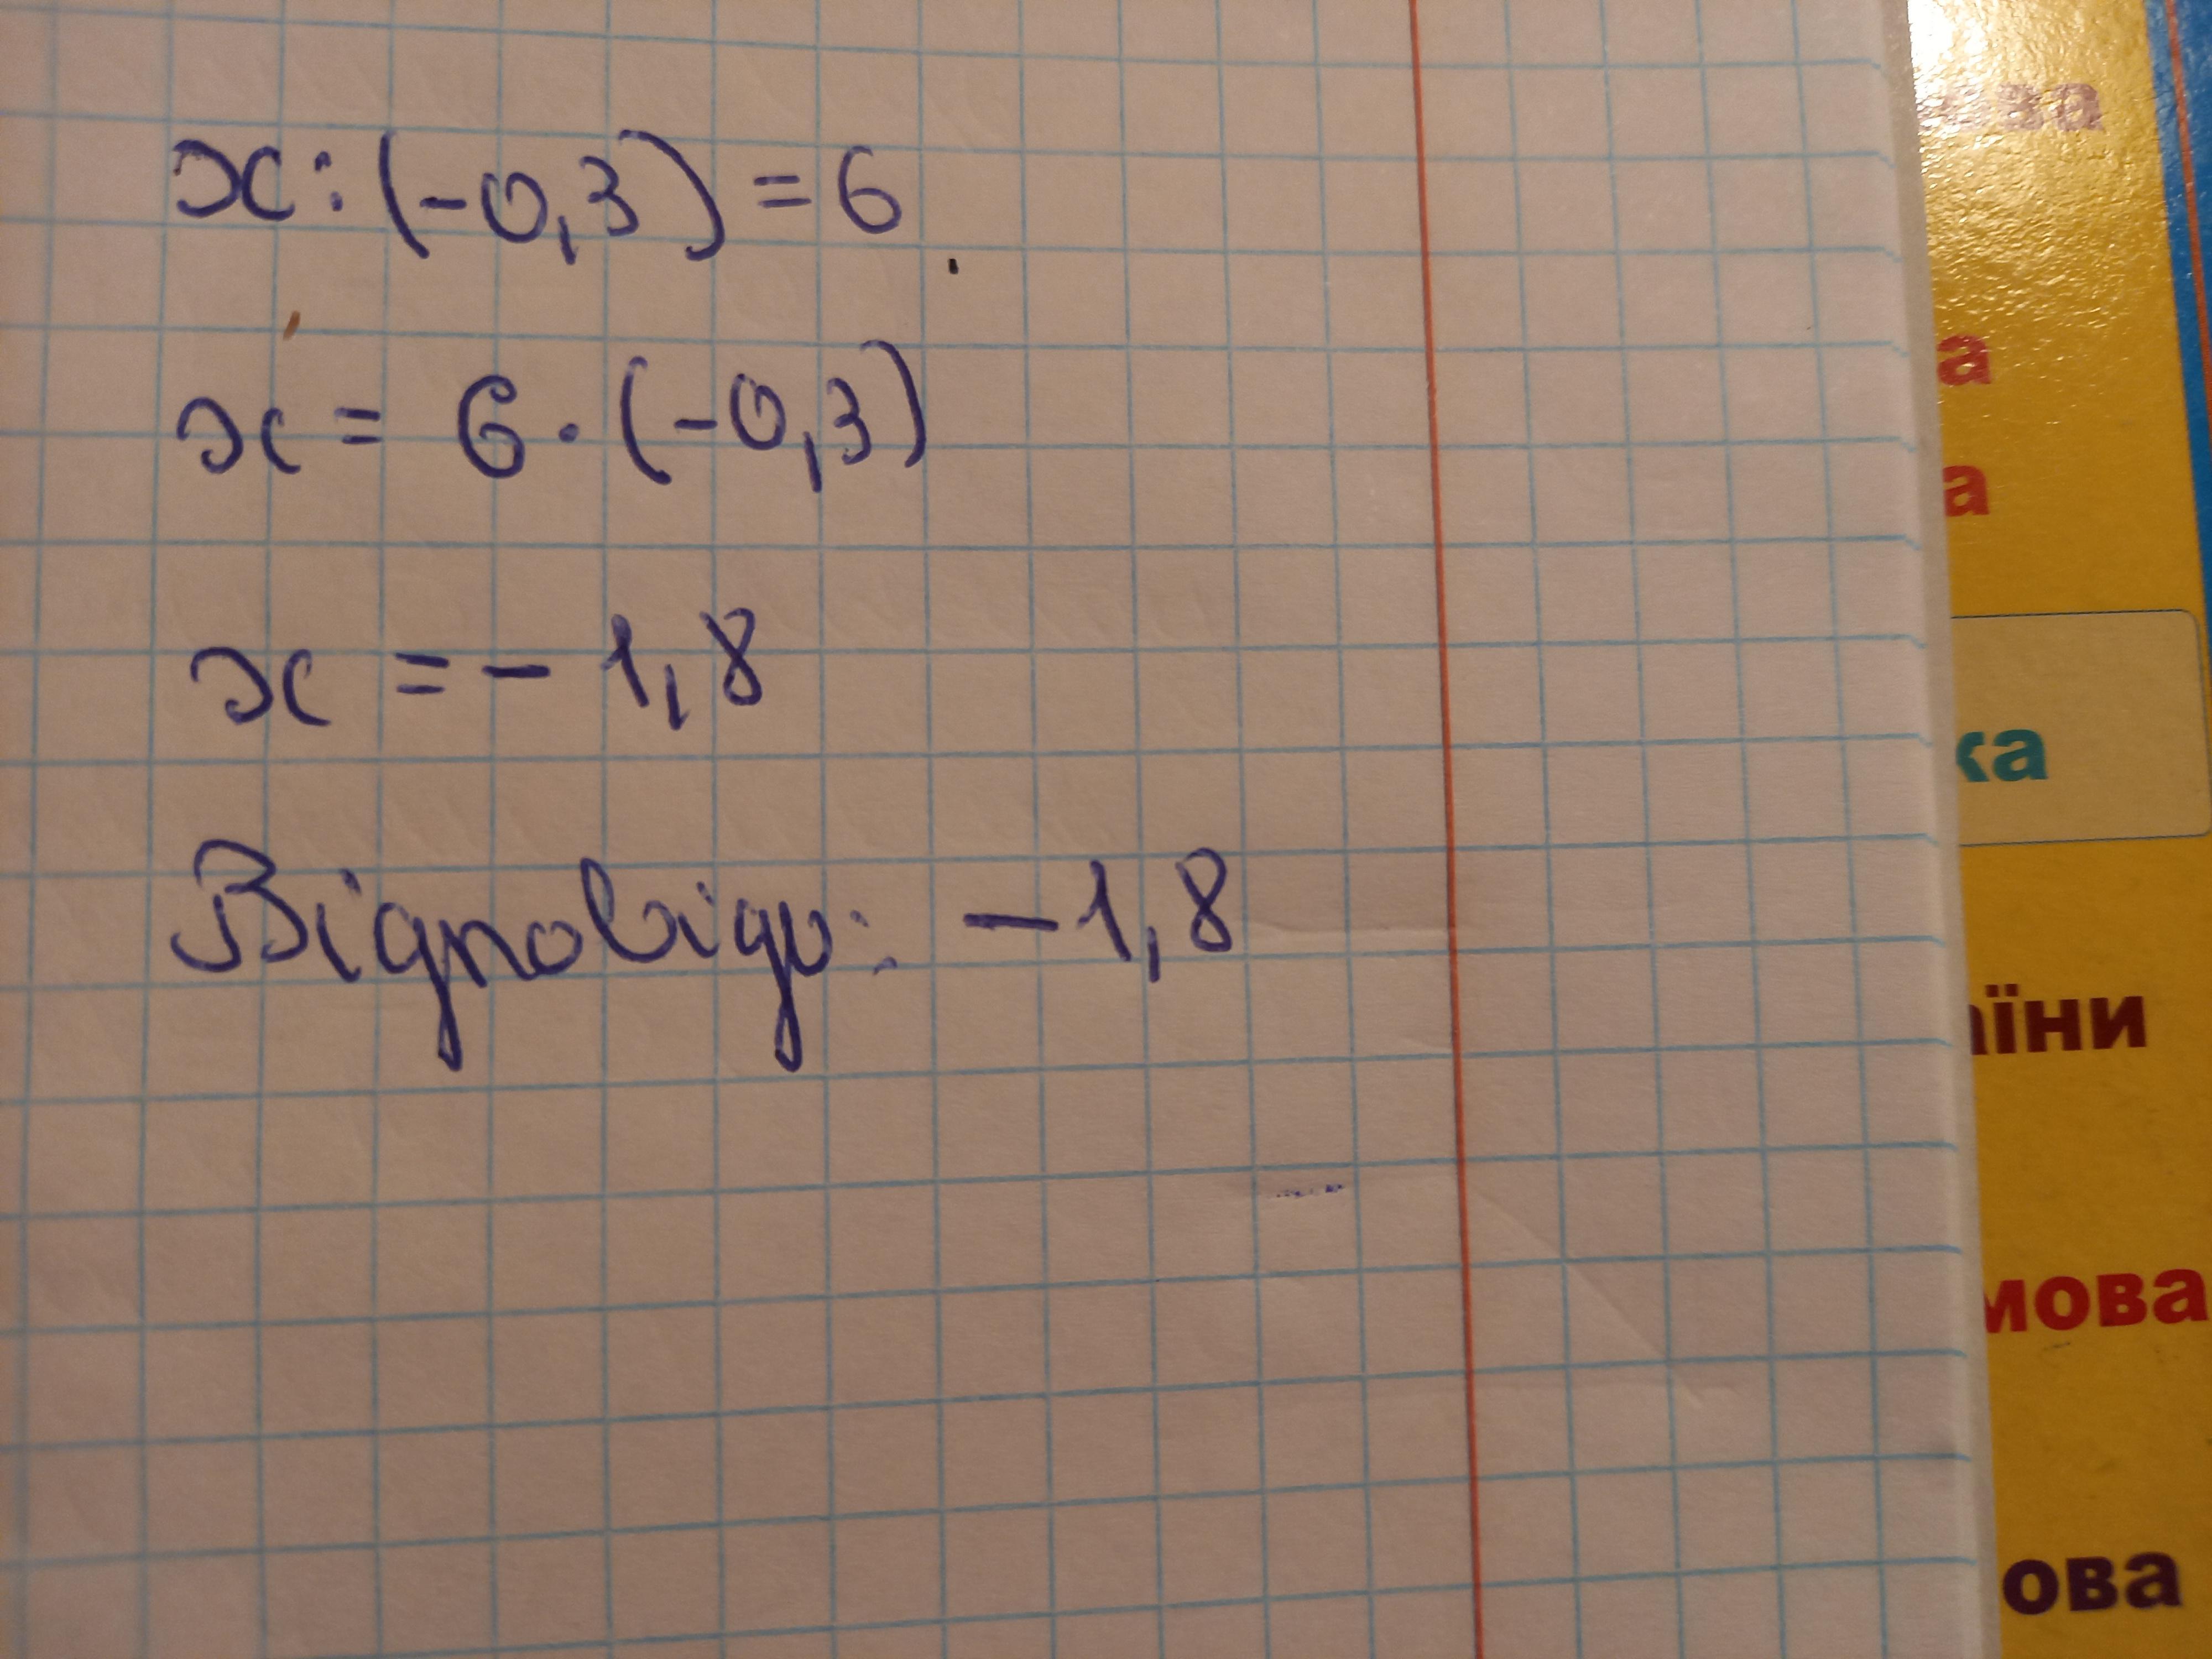 x : (-0,3) = 6
x = 6 · (-0,3)
x = - 1,8
Відповідь: - 1,8
ка
їни
мова
ова